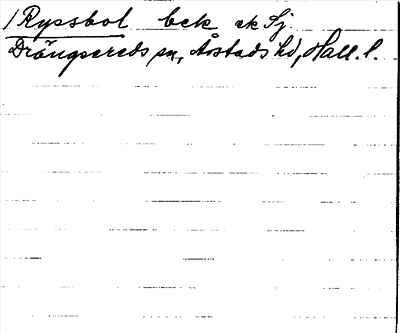 /Ryssbol bek ek Sj.
Drängsereds sn, Årstads hd, Hall. l.